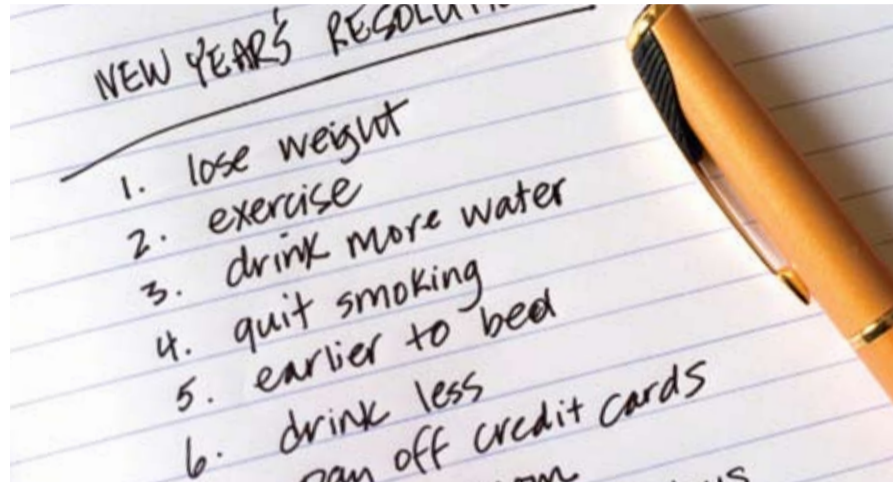 NEW YEAR'S
1. lose weight
2. exercise
3. drink more water
4. quit smoking
5. earlier to bed
6. drink less
pay off credit cards